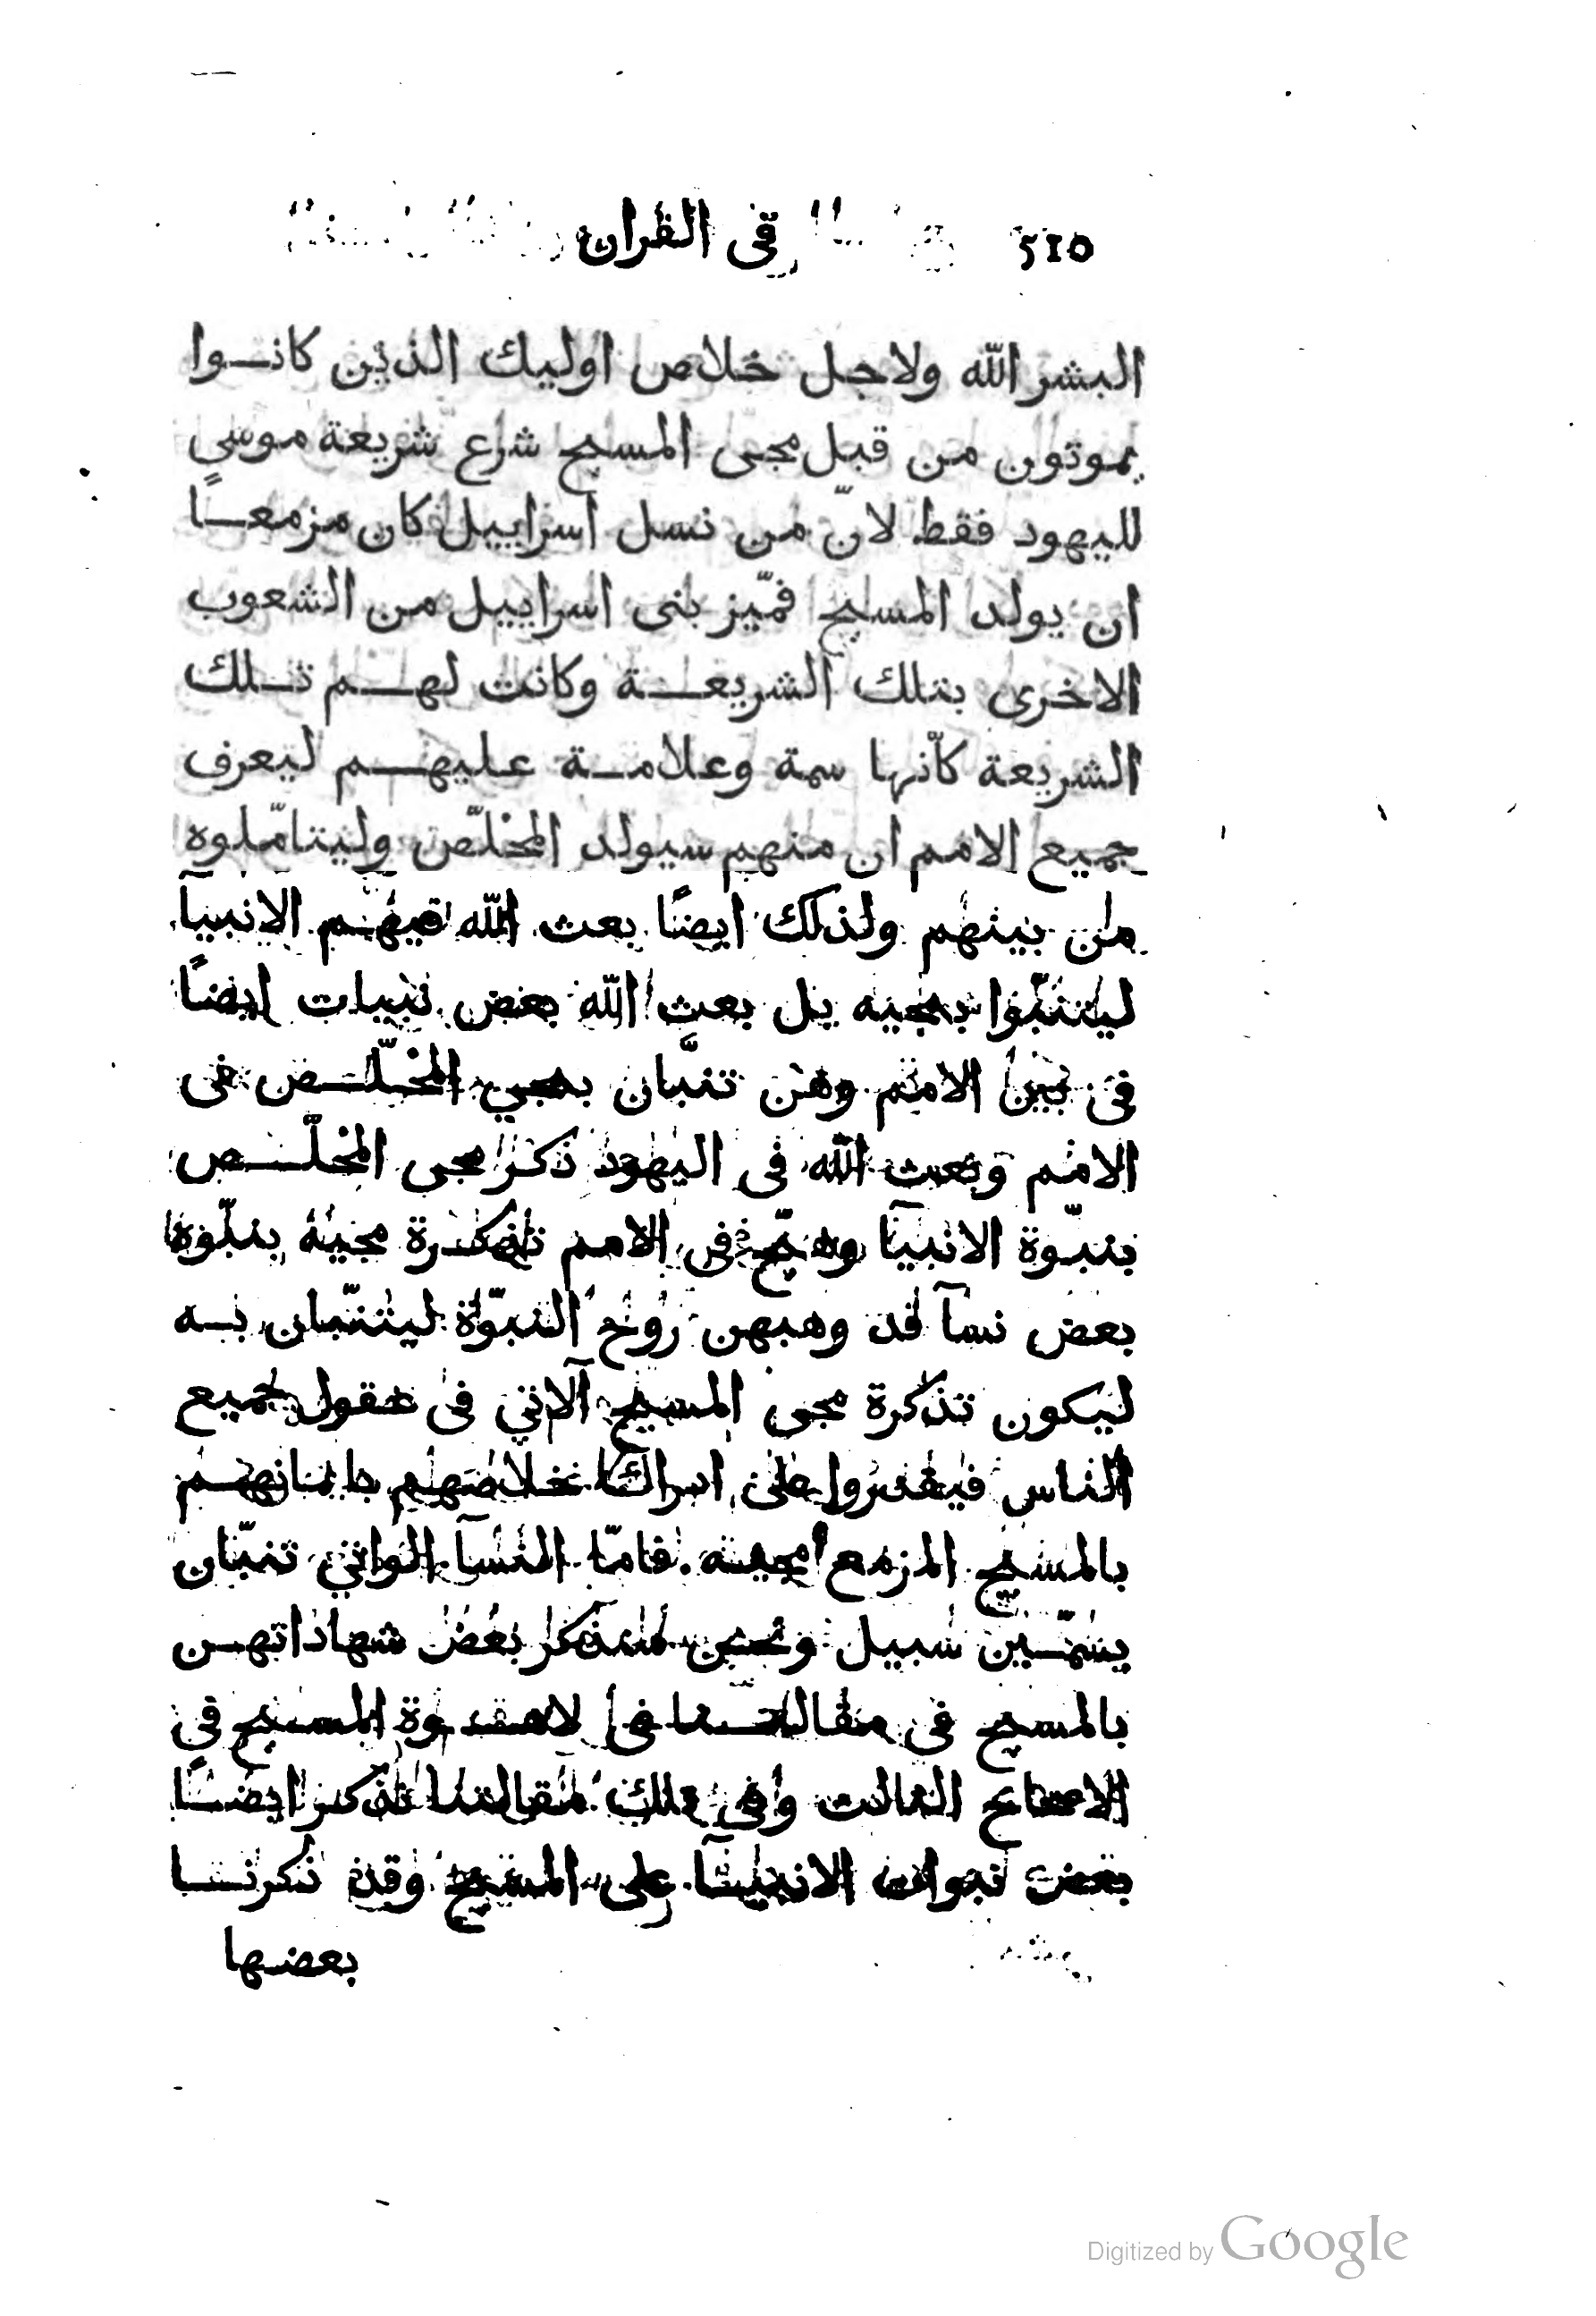 510 في القران
البشر الله ولاجل خلاص اوليك الذين كانوا
يموتون من قبل مجى المسيح شرع شريعة موسي
لليهود فقط لانّ من نسل اسراييل كان مزمعًا
ان يولد المسيح فميّز بنى اسراييل من الشعوب
الاخرى بتلك الشريعة وكانت لهم تلك
الشريعة كانّها سمة وعلامة عليهم ليعرف
جميع الامم ان منهم سيولد المخلّص وليتامّلوه
من بينهم ولذلك ايضًا بعث الله فيهم الانبيآ
ليتنبّوا بمجيه بل بعث الله بعض نبيات ايضًا
فى بين الامم وهن تنبّان بمجي المخلّص فى
الامم وبعث الله فى اليهود ذكر مجى المخلّص
بنبوّة الانبيآ وهيّج فى الامم تذكرة مجيه بنبّوة
بعض نسآ قد وهبهن روح النبوّة ليتنبّان به
ليكون تذكرة مجى المسيح الآتي فى عقول جميع
الناس فيقدروا على ادراك خلاصهم بايمانهم
بالمسيح المزمع مجيه. فامّا النسآ الواتي تنبّان
يسمّين سبيل ونحن سنذكر بعض شهاداتهن
بالمسيح فى مقالتنا فى لاهوة المسيح في
الاصحاح الثالث وفى تلك مقالتنا نذكر ايضًا
بعض نبوات الانبيآ على المسيح وقد ذكرنا
بعضها
Digitized by Google